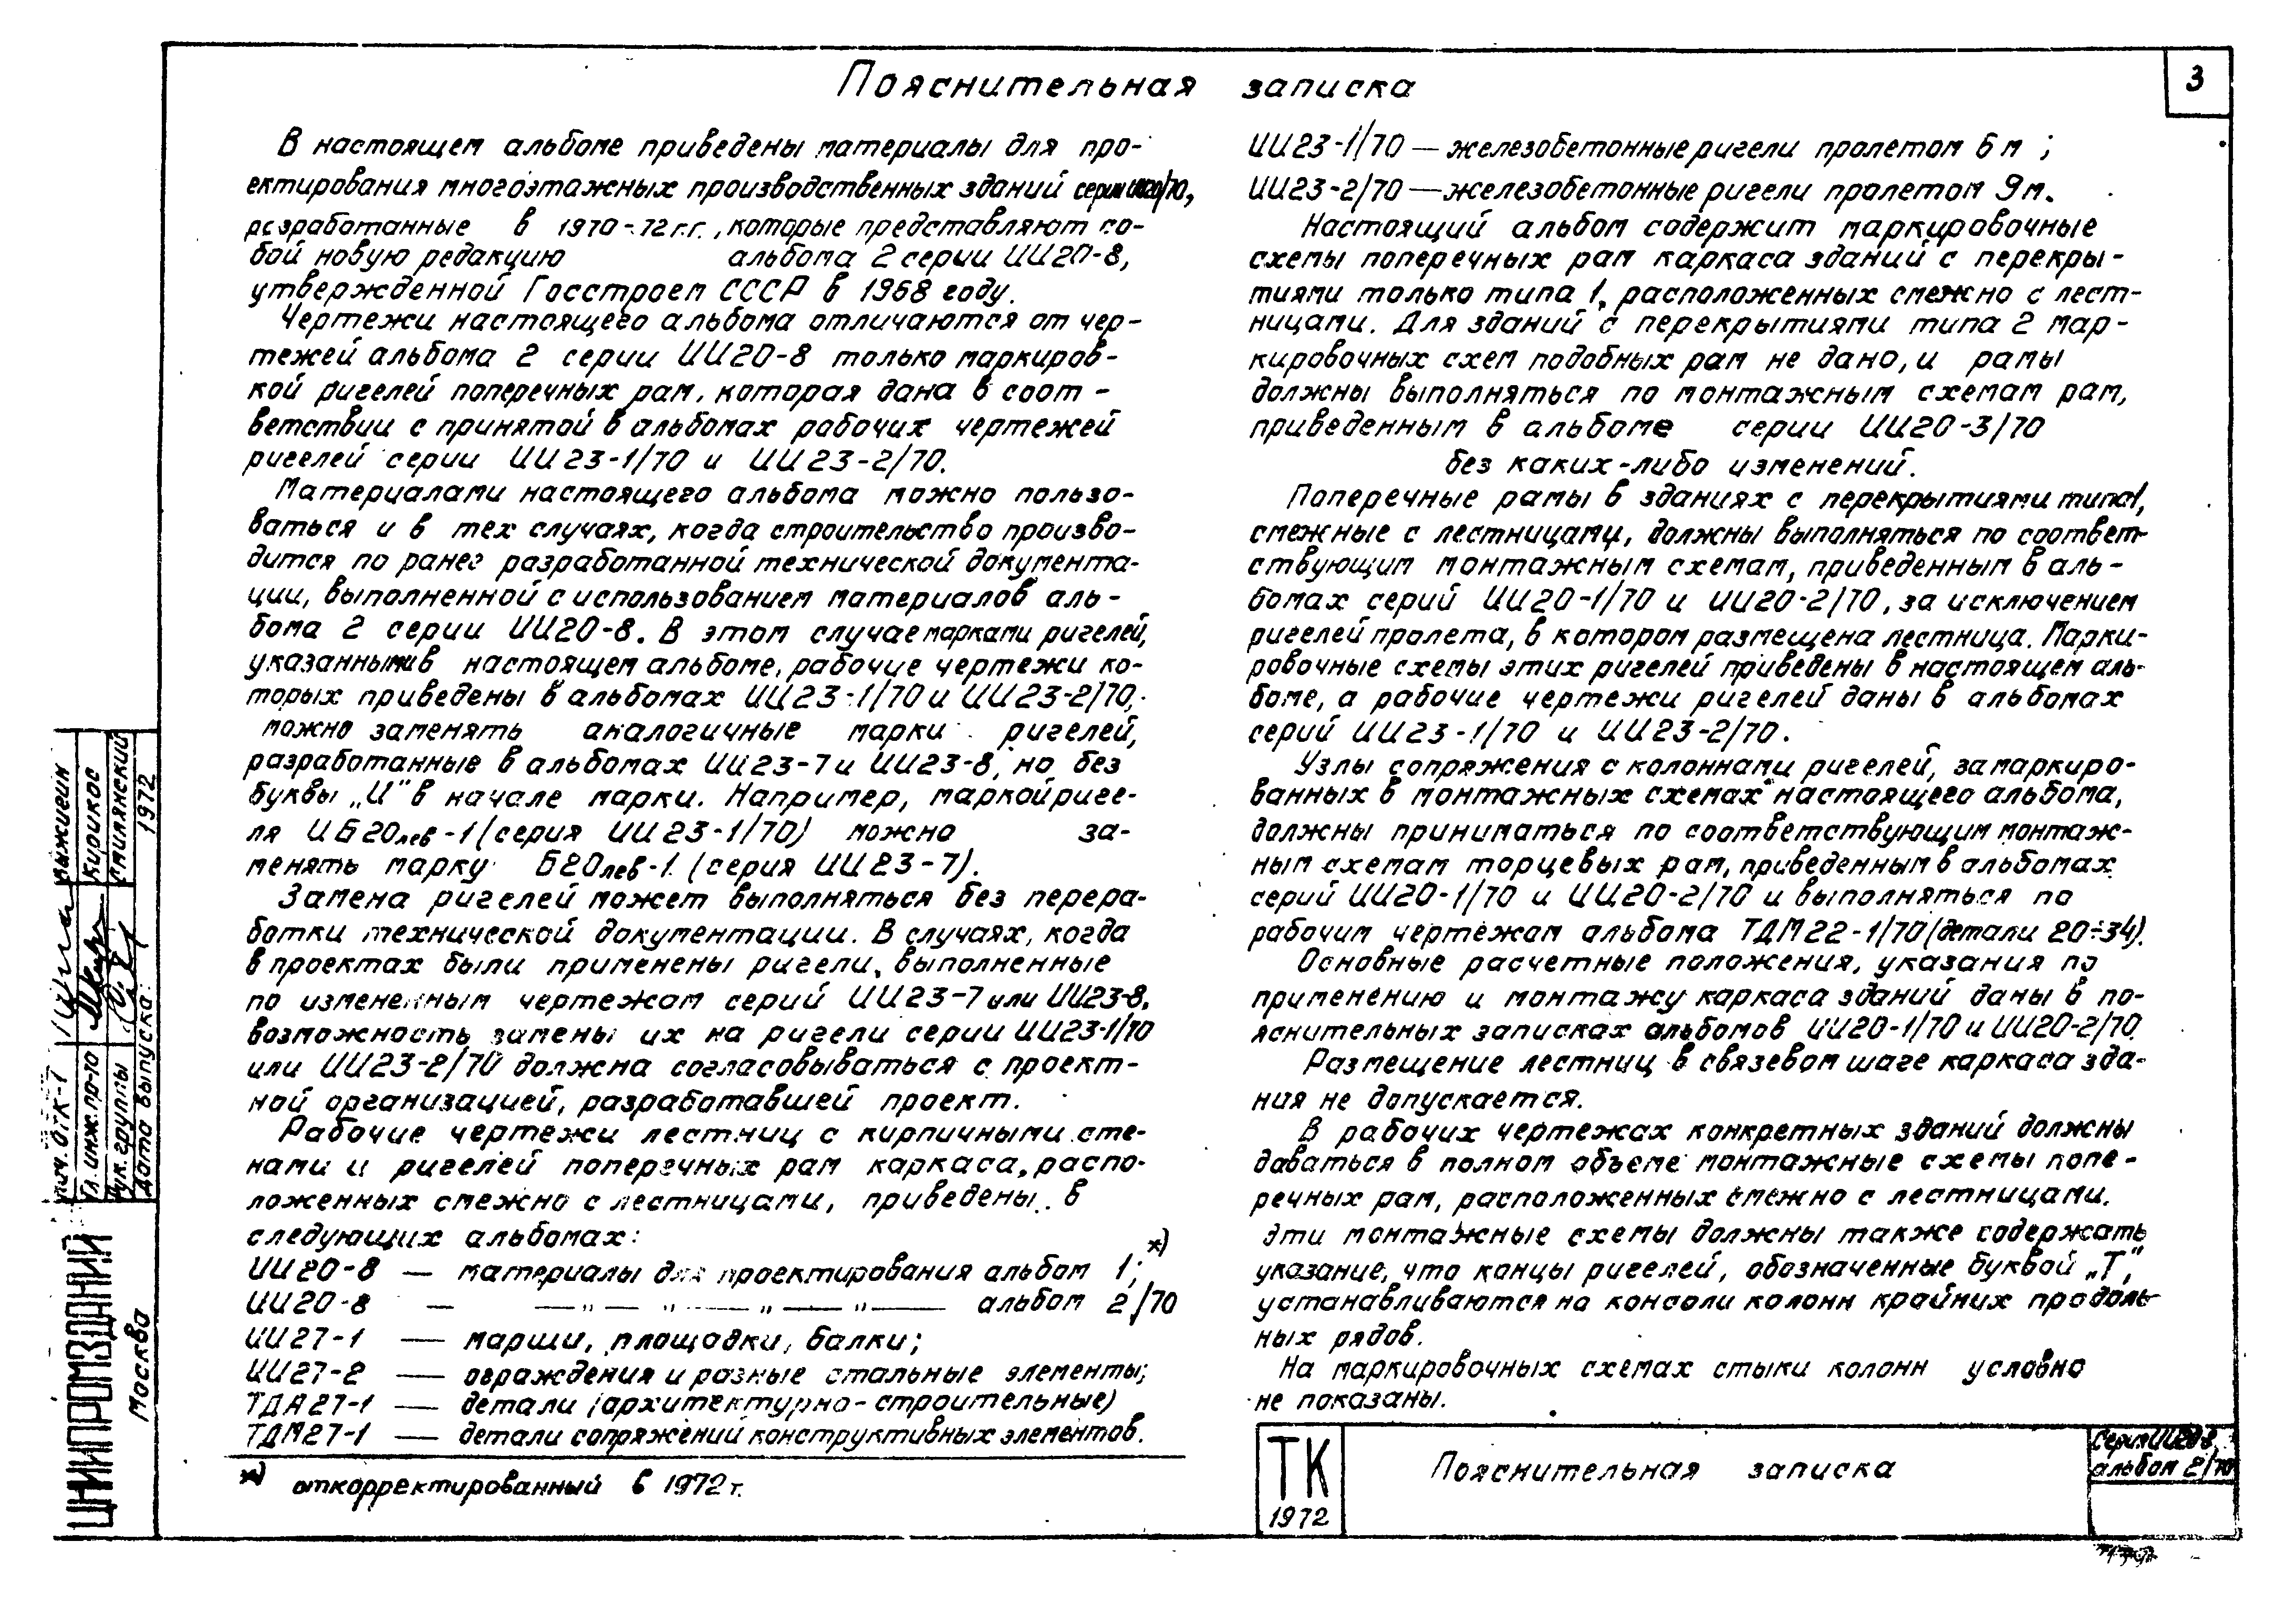 Пояснительная записка
3
В настоящем альбоме приведены материалы для про-
ектирования многоэтажных производственных зданий серии ИИ20/70,
разработанные в 1970-72 г.г., которые представляют со-
бой новую редакцию альбома 2 серии ИИ20-8,
утвержденной Госстроем СССР в 1968 году.
Чертежи настоящего альбома отличаются от чер-
тежей альбома 2 серии ИИ20-8 только маркиров-
кой ригелей поперечных рам, которая дана в соот-
ветствии с принятой в альбомах рабочих чертежей
ригелей серии ИИ23-1/70 и ИИ23-2/70.
Материалами настоящего альбома можно пользо-
ваться и в тех случаях, когда строительство произво-
дится по ранее разработанной технической документа-
ции, выполненной с использованием материалов аль-
бома 2 серии ИИ20-8. В этом случае марками ригелей,
указанными в настоящем альбоме, рабочие чертежи ко-
торых приведены в альбомах ИИ23-1/70 и ИИ23-2/70,
можно заменять аналогичные марки ригелей,
разработанные в альбомах ИИ23-7 и ИИ23-8, но без
буквы „И" в начале марки. Например, маркой риге-
ля ИБ20лев-1 (серия ИИ23-1/70) можно за-
менять марку Б20лев-1 (серия ИИ23-7).
Замена ригелей может выполняться без перера-
ботки технической документации. В случаях, когда
в проектах были применены ригели, выполненные
по измененным чертежам серий ИИ23-7 или ИИ23-8,
возможность замены их на ригели серии ИИ23-1/70
или ИИ23-2/70 должна согласовываться с проект-
ной организацией, разработавшей проект.
Рабочие чертежи лестниц с кирпичными сте-
нами и ригелей поперечных рам каркаса, распо-
ложенных смежно с лестницами, приведены в
следующих альбомах:
ИИ20-8 — материалы для проектирования альбом 1; *)
ИИ20-8 — —„— „ —„— „ — альбом 2/70
ИИ27-1 — марши, площадки, балки;
ИИ27-2 — ограждения и разные стальные элементы;
ТДА27-1 — детали (архитектурно-строительные)
ТДМ27-1 — детали сопряжений конструктивных элементов.
*) откорректированный в 1972 г.
ИИ23-1/70 — железобетонные ригели пролетом 6 м;
ИИ23-2/70 — железобетонные ригели пролетом 9 м.
Настоящий альбом содержит маркировочные
схемы поперечных рам каркаса зданий с перекры-
тиями только типа 1, расположенных смежно с лест-
ницами. Для зданий с перекрытиями типа 2 мар-
кировочных схем подобных рам не дано, и рамы
должны выполняться по монтажным схемам рам,
приведенным в альбоме серии ИИ20-3/70
без каких-либо изменений.
Поперечные рамы в зданиях с перекрытиями типа 1,
смежные с лестницами, должны выполняться по соответ-
ствующим монтажным схемам, приведенным в аль-
бомах серий ИИ20-1/70 и ИИ20-2/70, за исключением
ригелей пролета, в котором размещена лестница. Марки-
ровочные схемы этих ригелей приведены в настоящем аль-
боме, а рабочие чертежи ригелей даны в альбомах
серий ИИ23-1/70 и ИИ23-2/70.
Узлы сопряжения с колоннами ригелей, замаркиро-
ванных в монтажных схемах настоящего альбома,
должны приниматься по соответствующим монтаж-
ным схемам торцевых рам, приведенным в альбомах
серий ИИ20-1/70 и ИИ20-2/70 и выполняться по
рабочим чертежам альбома ТДМ22-1/70 (детали 20÷34).
Основные расчетные положения, указания по
применению и монтажу каркаса зданий даны в по-
яснительных записках альбомов ИИ20-1/70 и ИИ20-2/70.
Размещение лестниц в связевом шаге каркаса зда-
ния не допускается.
В рабочих чертежах конкретных зданий должны
даваться в полном объеме монтажные схемы попе-
речных рам, расположенных смежно с лестницами.
Эти монтажные схемы должны также содержать
указание, что концы ригелей, обозначенные буквой „Т",
устанавливаются на консоли колонн крайних продоль-
ных рядов.
На маркировочных схемах стыки колонн условно
не показаны.
ТК
1972
Пояснительная записка
Серия ИИ20-8
альбом 2/70
ЦНИИПРОМЗДАНИЙ
Москва
нач. ОТК-1 Мыжигин
Гл. инж. пр-та Кирикос
Рук. группы Смилянский
Дата выпуска: 1972